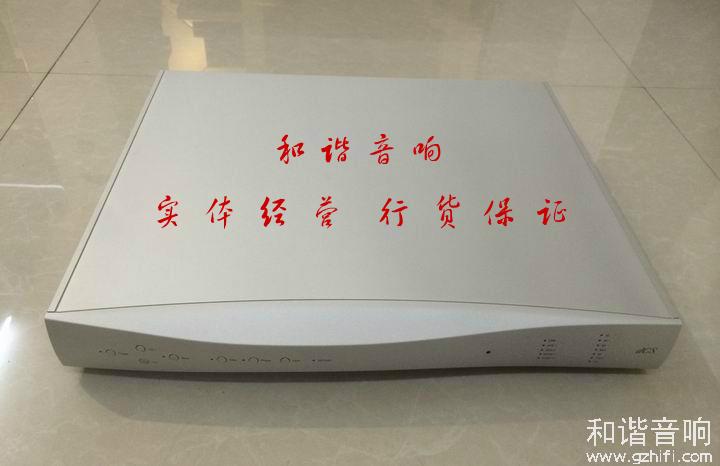 和谐音响
实体经营 行货保证
dCS
和谐音响
www.gzhifi.com